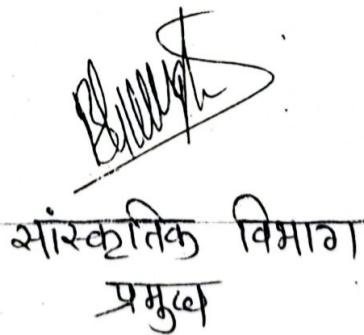 सांस्कृतिक विभाग
प्रमुख